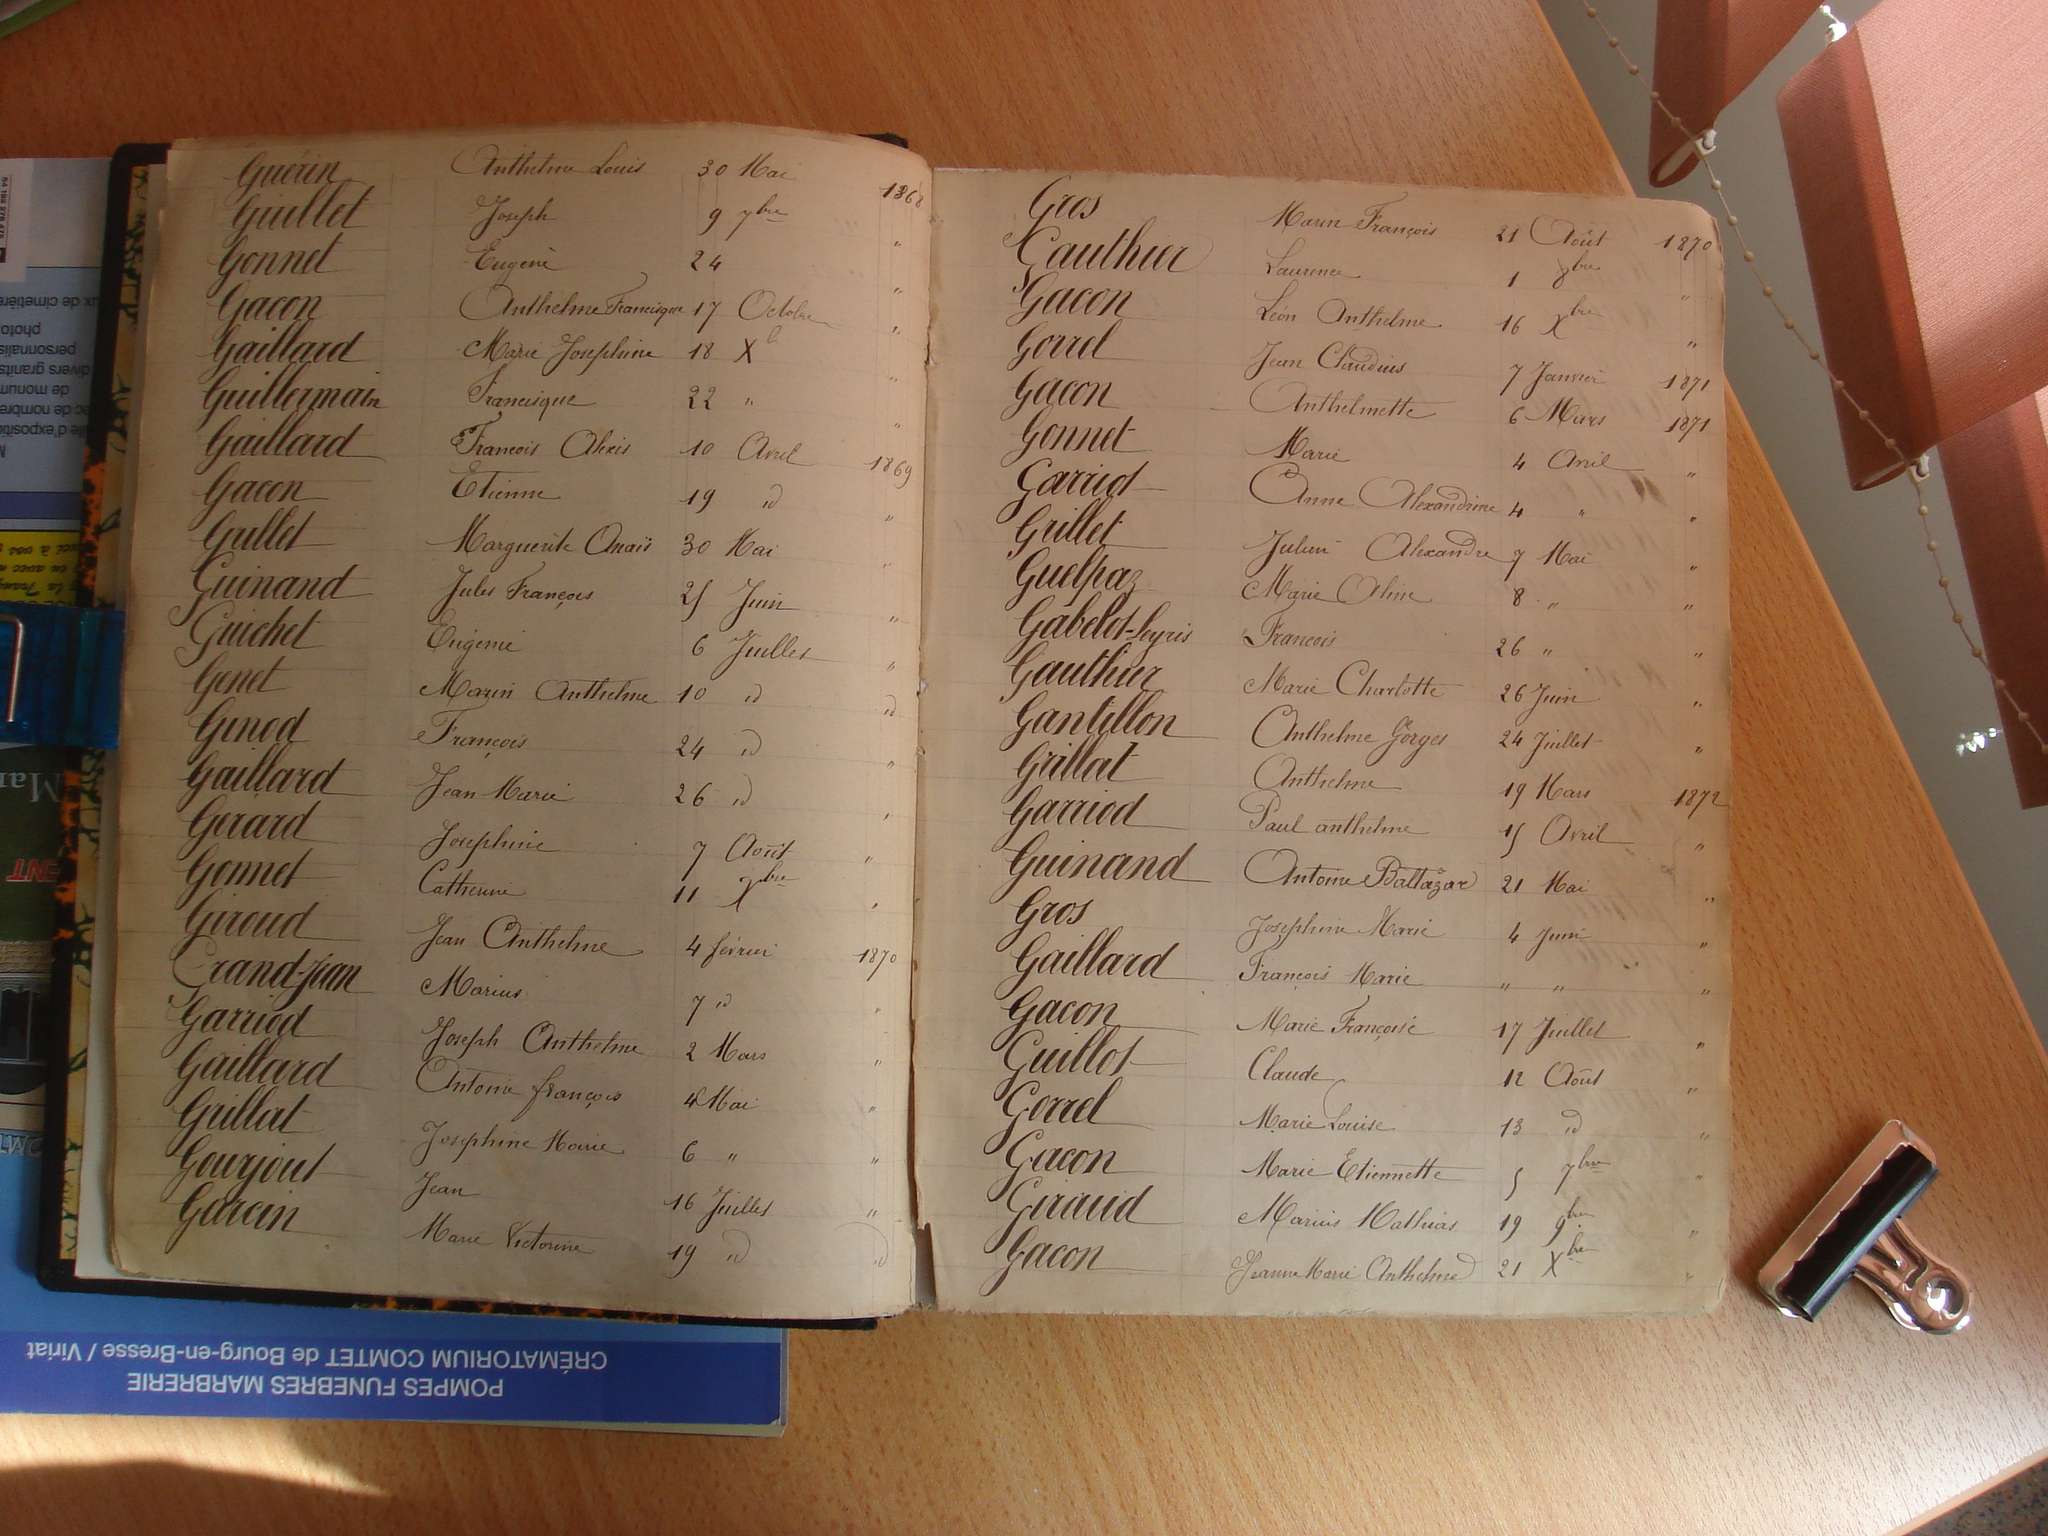 Guérin Anthelme Louis 30 Mai 1868
Guillet Joseph 9 7bre "
Gonnet Eugène 24 "
Gacon Anthelme Francisque 17 Octobre "
Gaillard Marie Josephine 18 Xb "
Guillermain Francisque 22 " "
Gaillard François Alexis 10 Avril 1869
Gacon Etienne 19 id "
Grillet Marguerite Anaïs 30 Mai "
Guinand Jules François 25 Juin "
Guichet Eugénie 6 Juillet "
Genet Marin Anthelme 10 id id
Genod François 24 id "
Gaillard Jean Marie 26 id "
Gerard Josephine 7 Août "
Gonnet Catherine 11 Xbre "
Giroud Jean Anthelme 4 février 1870
Grand-Jean Marius 7 id "
Garriod Joseph Anthelme 2 Mars "
Gaillard Antoine françois 4 Mai "
Grillat Josephine Marie 6 " "
Gourjout Jean 16 Juillet "
Garcin Marie Victorine 19 id id
Gros Marin François 21 Août 1870
Gauthier Laurence 1 8bre "
Gacon Léon Anthelme 16 Xbre "
Gorrel Jean Claudius 7 Janvier 1871
Gacon Anthelmette 6 Mars 1871
Gonnet Marie 4 Avril "
Garriod Anne Alexandrine 4 " "
Grillet Julien Alexandre 7 Mai "
Guelpaz Marie Aline 8 " "
Gabelot-Leyris François 26 " "
Gauthier Marie Charlotte 26 Juin "
Gantillon Anthelme Gorges 24 Juillet "
Grillat Anthelme 19 Mars 1872
Garriod Paul anthelme 15 Avril "
Guinand Antoine Baltazar 21 Mai "
Gros Josephine Marie 4 Juin "
Gaillard François Marie " " "
Gacon Marie Françoise 17 Juillet "
Guillot Claude 12 Août "
Gorrel Marie Louise 13 id "
Gacon Marie Etiennette 5 7bre "
Giraud Marius Mathias 19 9bre "
Gacon Jeanne Marie Anthelme 21 Xbre "
CRÉMATORIUM COMTET de Bourg-en-Bresse / Viriat
POMPES FUNEBRES MARBRERIE